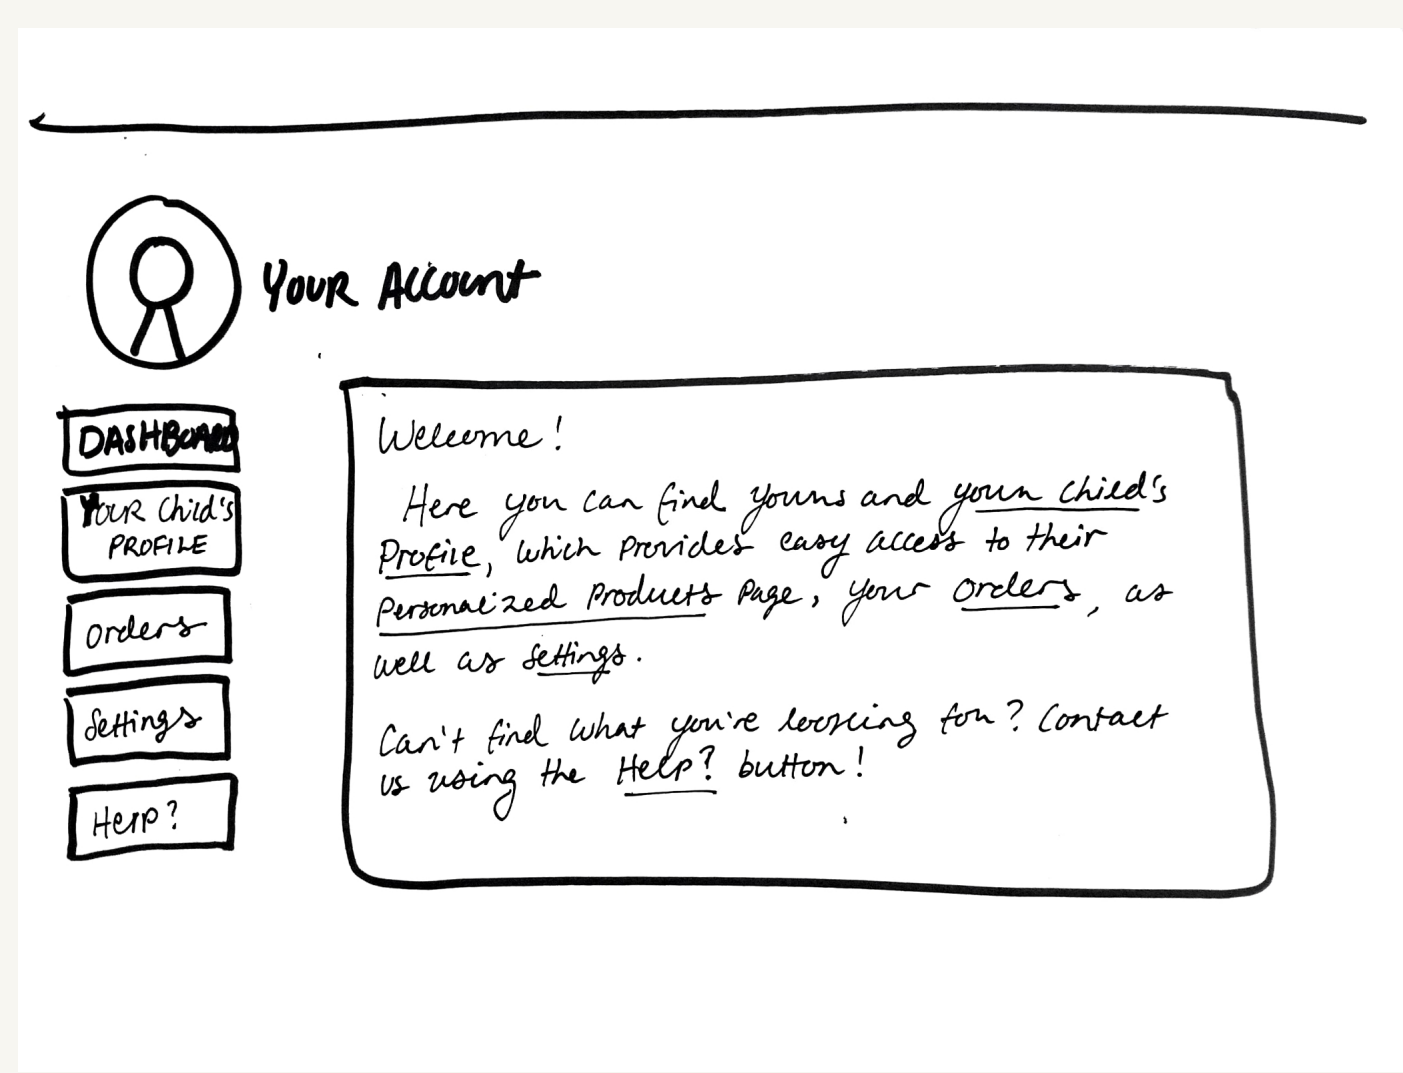 YOUR Account
DASHBOARD
YOUR Child's
PROFILE
Orders
Settings
Help?
Welcome!
Here you can find yours and your child's
Profile, which provides easy access to their
Personalized Products Page, your orders, as
well as settings.
Can't find what you're looking for? Contact
us using the Help? button!